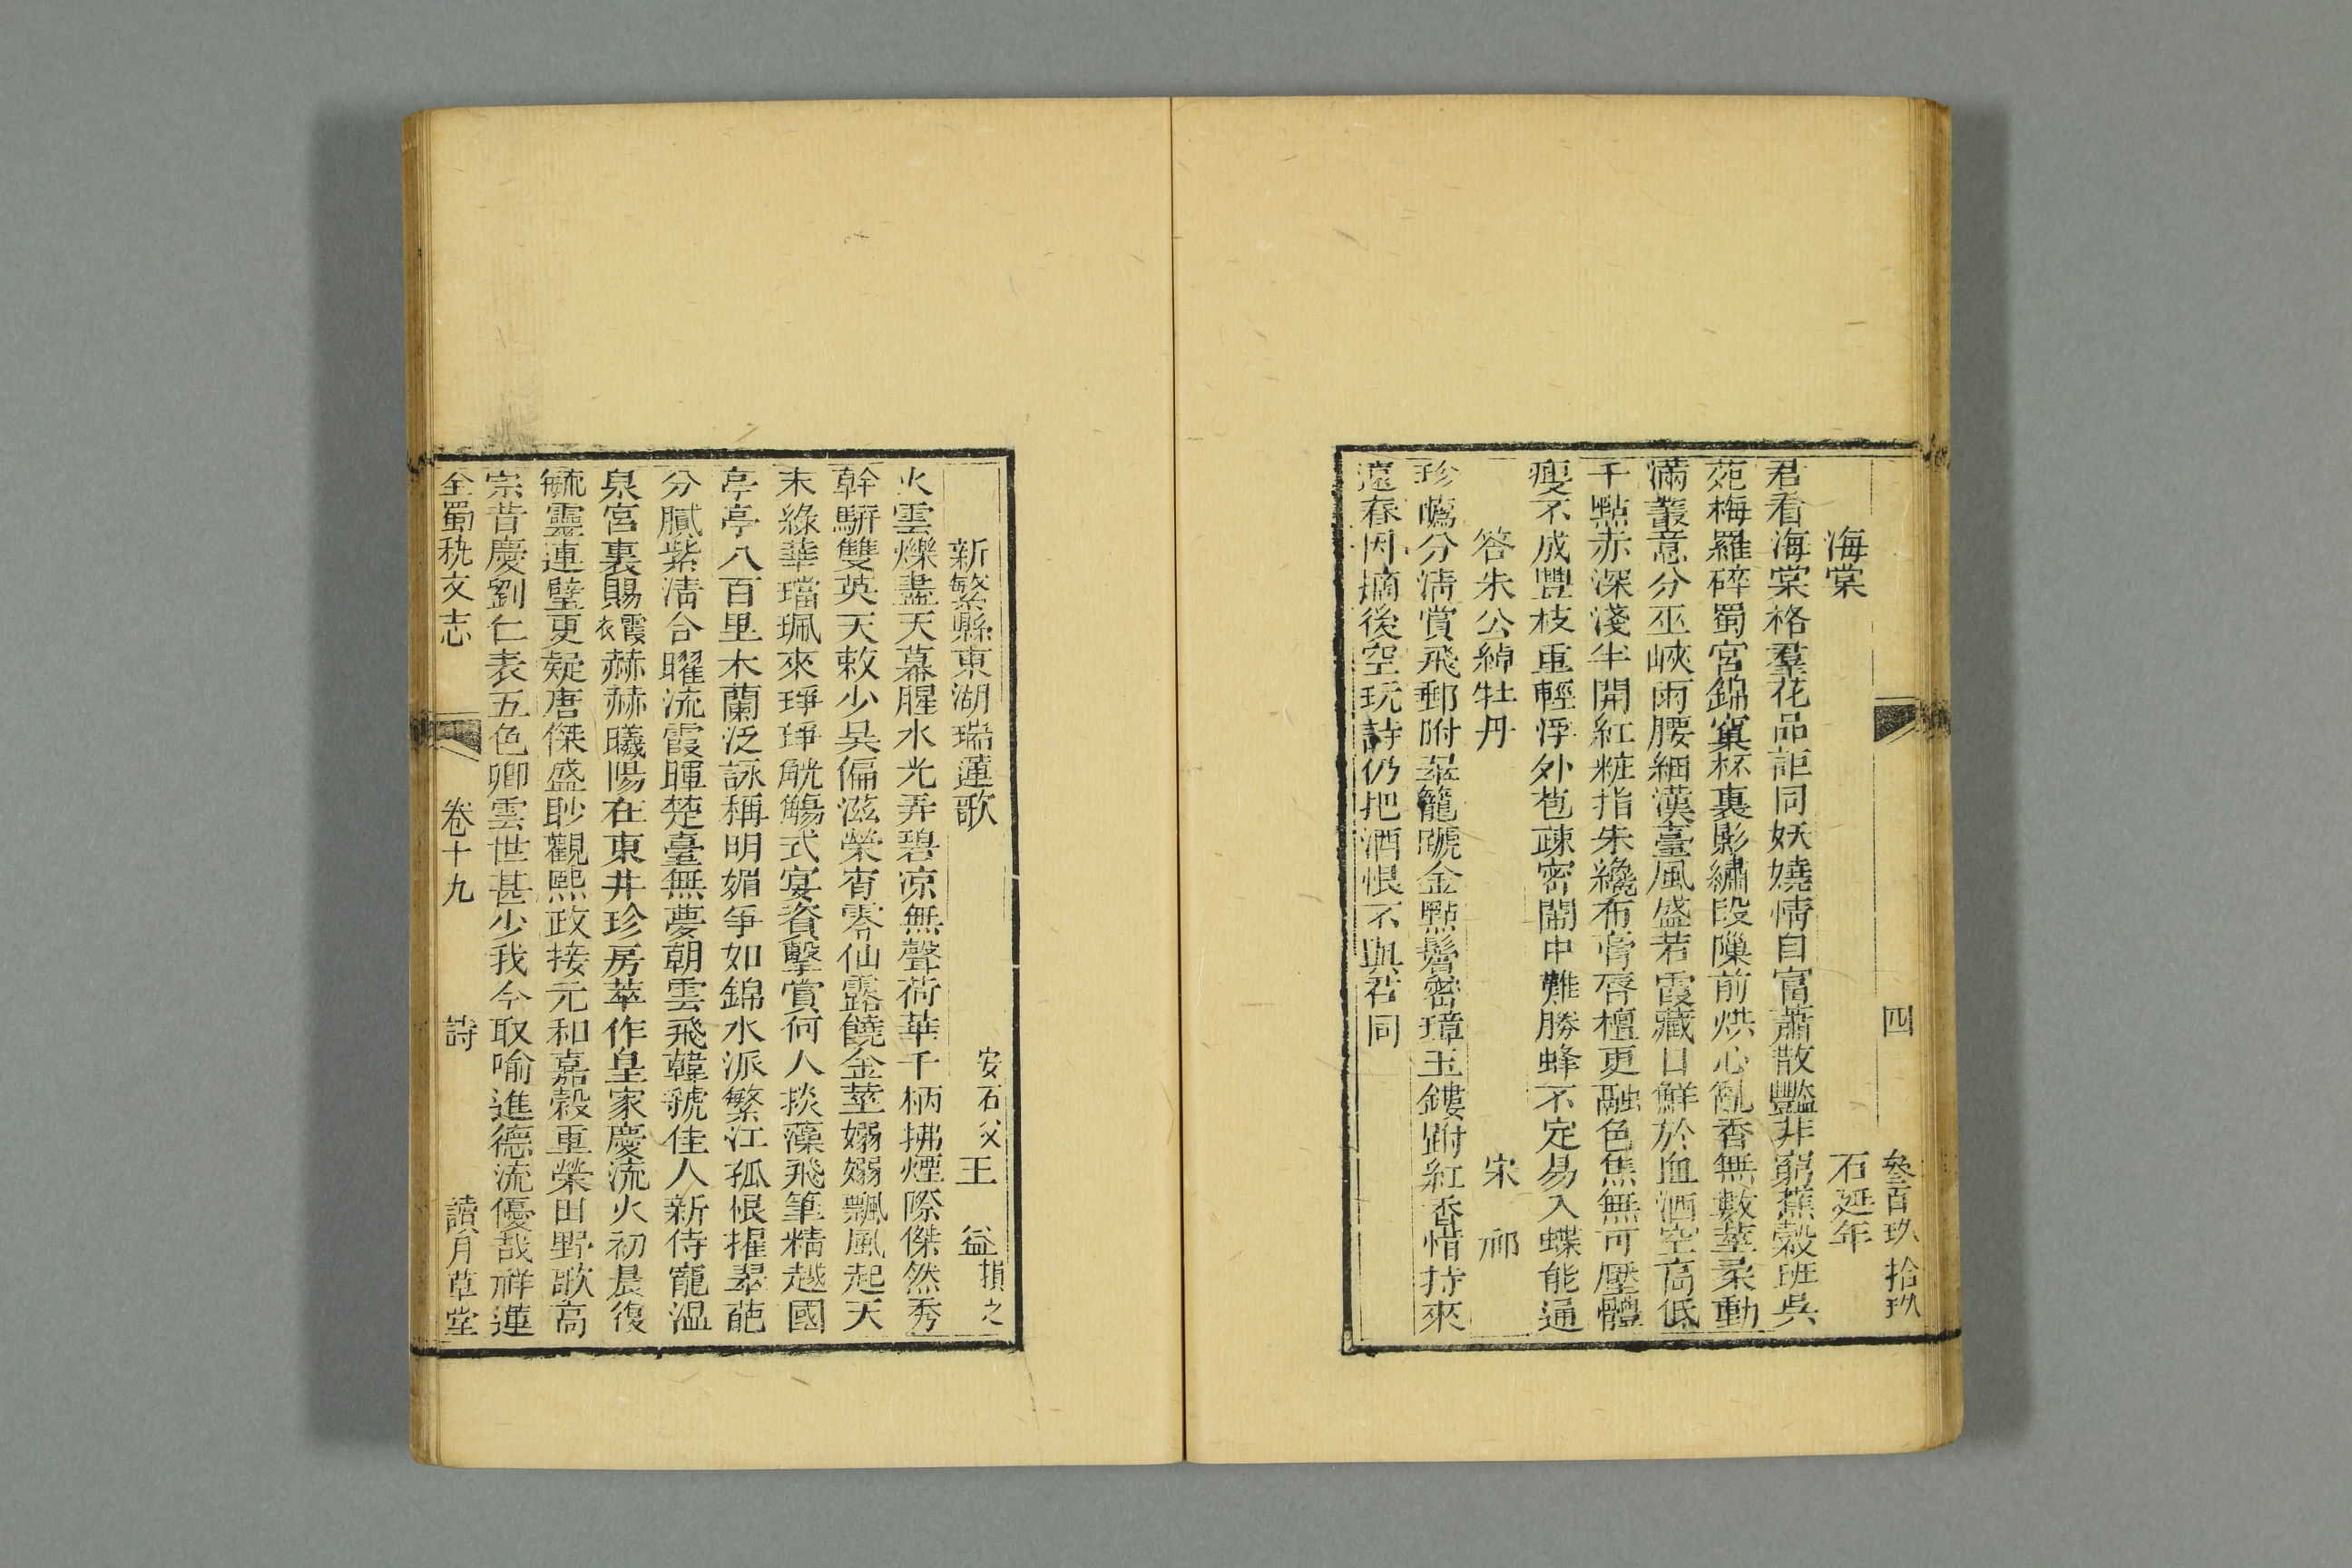 四 叄百玖拾玖
海棠 石延年
君看海棠格羣花品詎同妖嬈情自富蕭散豔非窮蕉縠班吳
苑梅羅碎蜀宮錦窠杯裏影繡段隟前烘心亂香無數莖柔動
滿叢意分巫峽雨腰細漢臺風盛若霞藏日鮮於血洒空高低
千點赤深淺半開紅粧指朱纔布膏唇檀更融色焦無可壓體
瘦不成豐枝重輕浮外苞疎密鬧中難勝蜂不定易入蝶能通
答朱公綽牡丹 宋祁
珍蘤分清賞飛郵附翠籠蹏金點鬢密璋玉鏤跗紅香惜持來
遠春因摘後空玩詩仍把酒恨不與君同
新繁縣東湖瑞蓮歌 安石父王益損之
火雲爍盡天幕腥水光弄碧凉無聲荷華千柄拂煙際傑然秀
幹駢雙英天敕少昊偏滋榮宵零仙露饒金莖嫋嫋飄風起天
末綠華璫珮來琤琤觥觴式宴資擊賞何人掞藻飛筆精越國
亭亭八百里木蘭泛詠稱明媚爭如錦水派繁江孤根擢翠葩
分膩紫淸合曜流霞暉楚臺無夢朝雲飛韓虢佳人新侍寵溫
泉宮裏賜霞衣赫赫曦陽在東井珍房萃作皇家慶流火初晨復
毓靈連璧更疑唐傑盛眇觀熙政接元和嘉穀重榮田野歌高
宗昔慶劉仁表五色卿雲世甚少我今取喻進德流優哉祥蓮
全蜀秇文志 卷十九 詩 讀月草堂